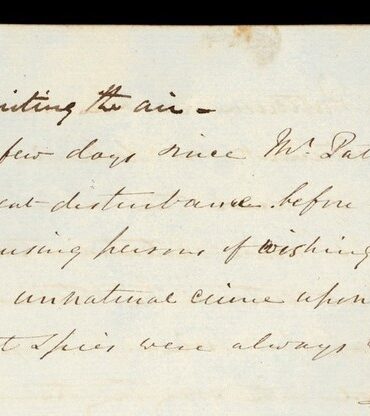 iting the air -
few days since Mr Pat
eat disturbance before
using persons of wishing
unnatural crime upon
t Spies were always